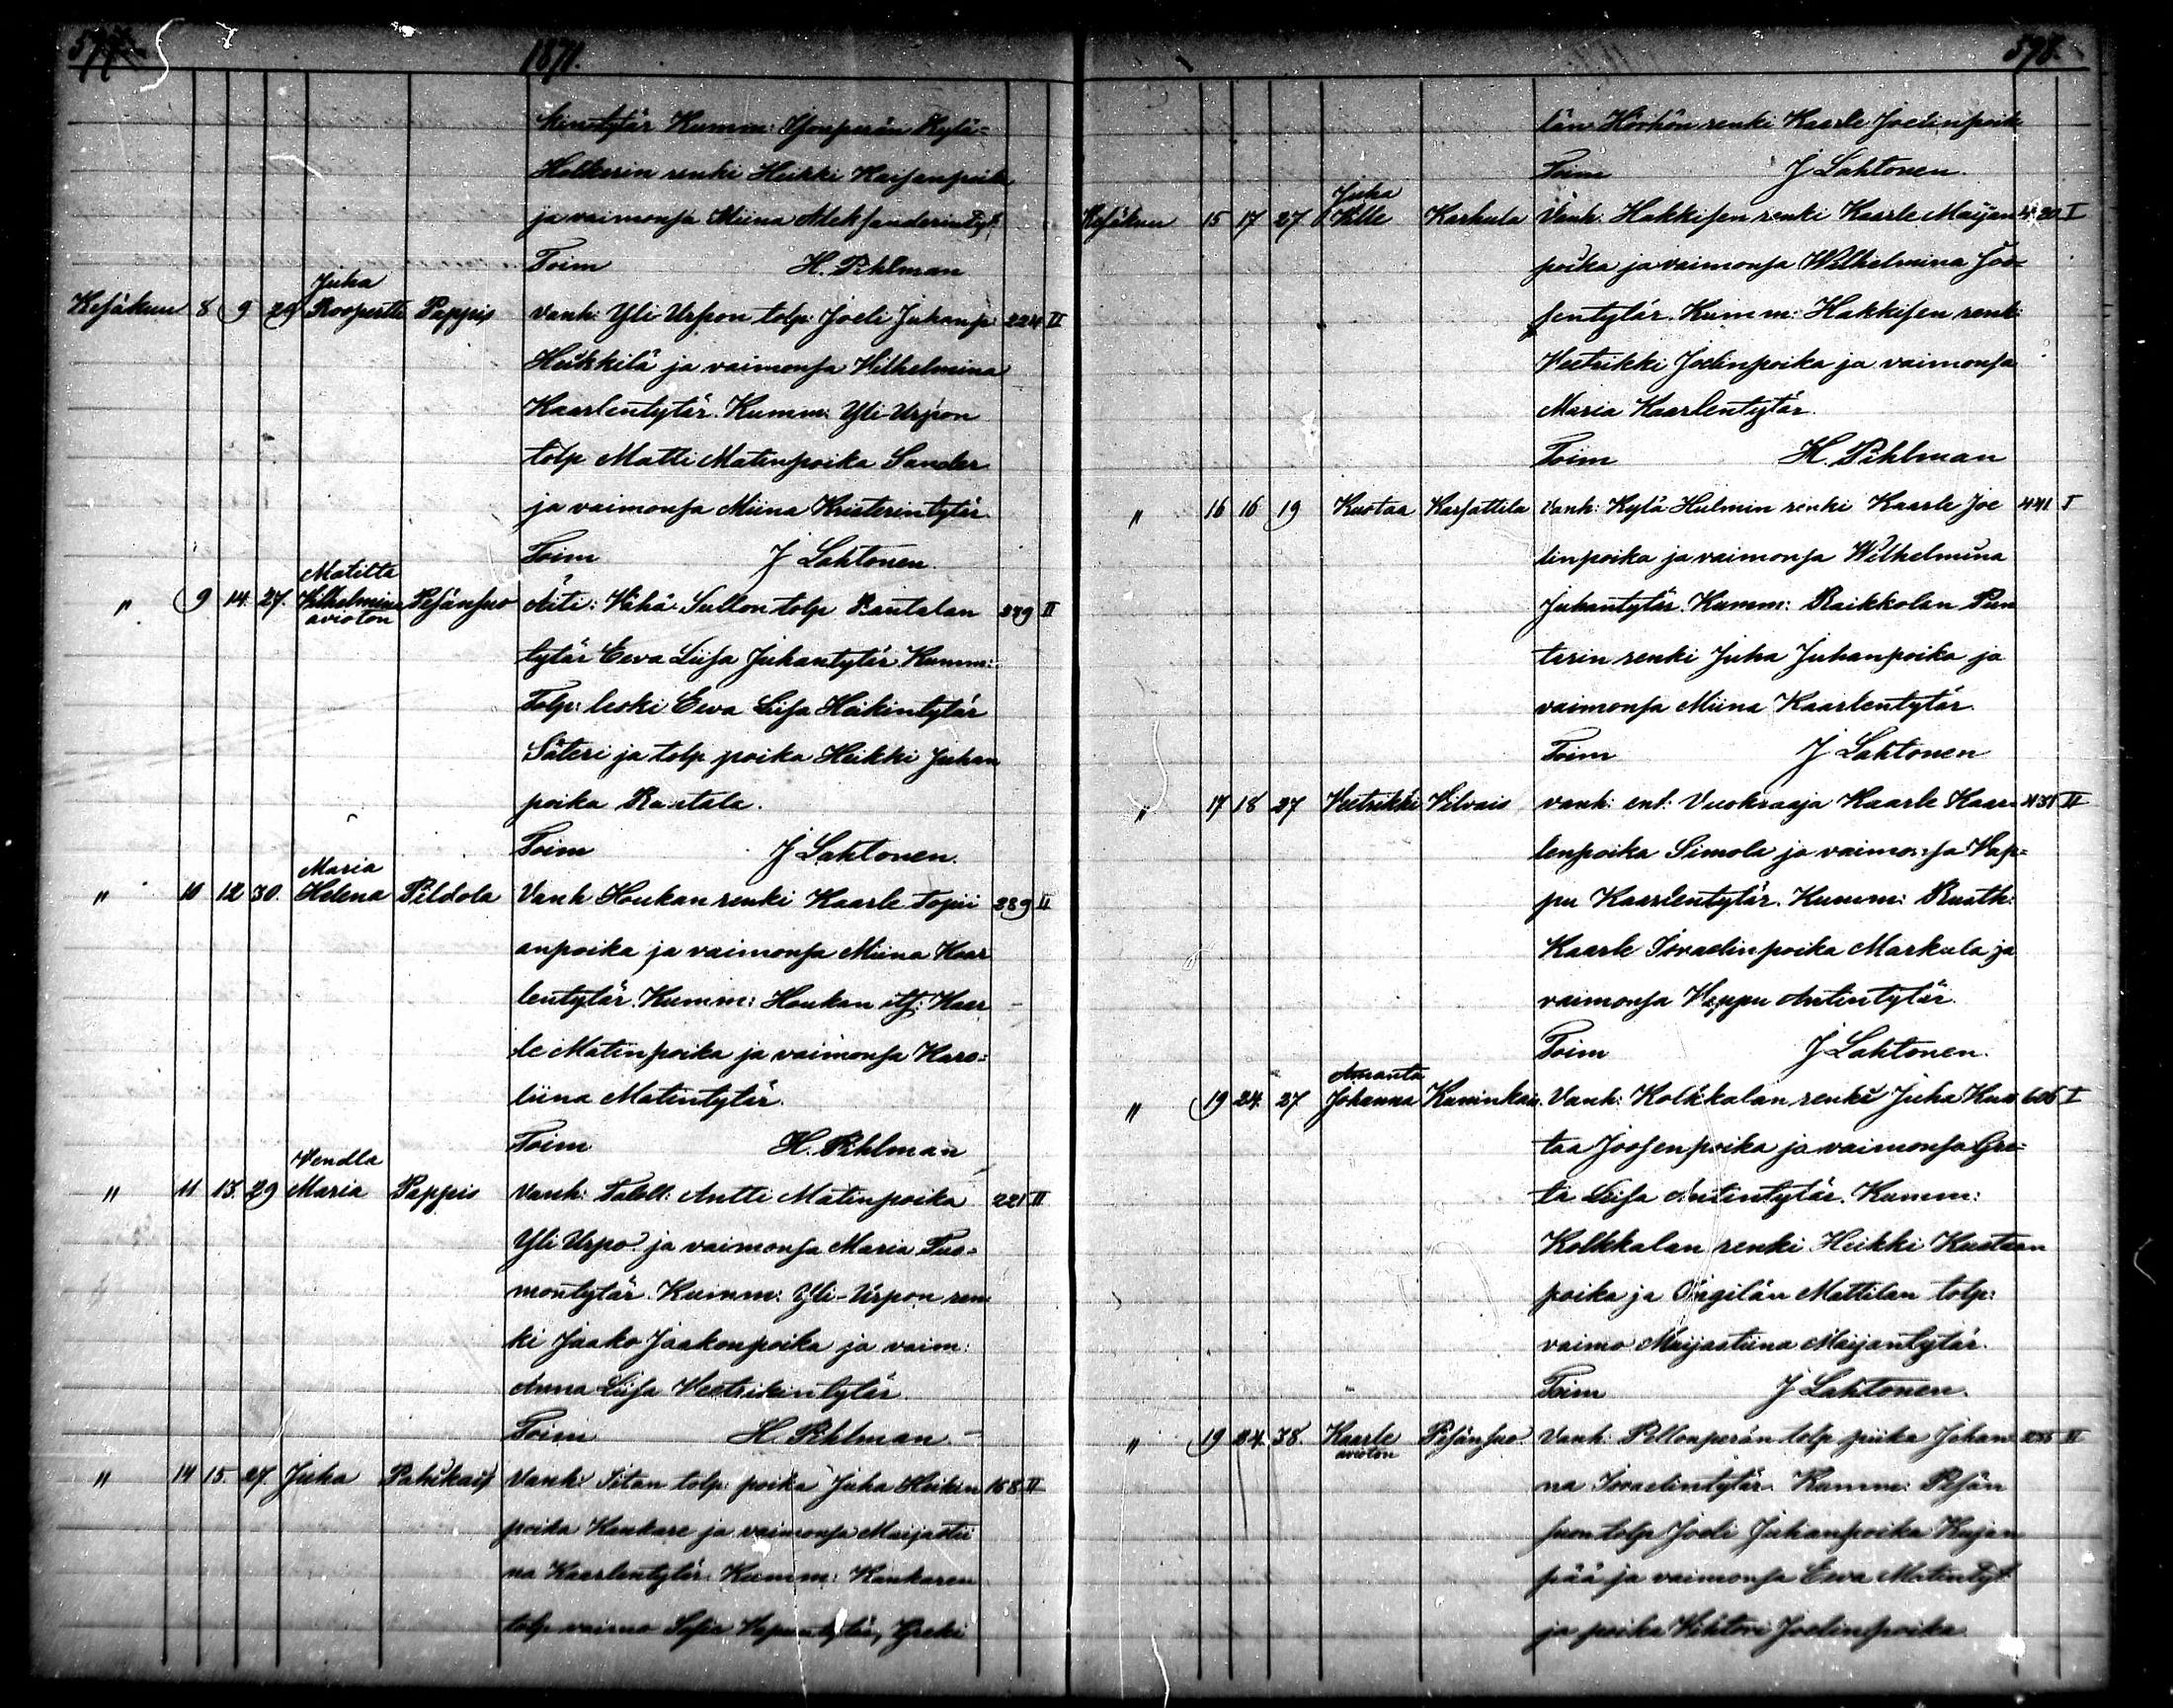 597
1871.
Kumm: Yonperän Kylä-
Holkerin renki Heikki Kaisanpoika
ja vaimonsa Miina Aleksanderintyt:
Toim H. Pihlman
Juha
Kesäkuu 8 9 29 Roopertti Pappis Vanh: Yli Urpon tolp: Joeli Juhanp: 224 II
Heikkilä ja vaimonsa Wilhelmina
Kaarlentytär. Kumm: Yli-Urpon
tolp Matti Matinpoika Sander
ja vaimonsa Miina Kristerintytär
Toim J Lahtonen.
Matilta
" 9 14. 27. Vilhelmina Pesänsuo Äiti: Vähä Sullon tolp Rautalan 279 II
avioton
tytär Eeva Liisa Juhantytär. Kumm:
Tolp: leski Eeva Liisa Heikintytär
Säteri ja tolp poika Heikki Juhan
poika Rautala.
Toim J Lahtonen.
Maria
" 10 12 30. Helena Pildola Vanh Houkan renki Kaarle Topii 289 II
anpoika ja vaimonsa Miina Kaar
lentytär. Kumm: Houkan its: Kaar
le Matinpoika ja vaimonsa Karo-
liina Matintytär.
Toim H. Pihlman
Vendla
" 11 13. 29 Maria Pappis Vanh: Taloll: Antti Matinpoika 221 II
Yli Urpo ja vaimonsa Maria Tuo-
montytär. Kumm: Yli-Urpon ren
ki Jaako Jaakonpoika ja vaim:
Anna Liisa Veetrikintytär
Toim H. Pihlman.
" 14 15. 27. Juha Pahikais Vanh: Sitan tolp: poika Juha Heikin 168 II
poika Kankare ja vaimonsa Maijastii
na Kaarlentytär. Kumm: Kankaren
tolp vaimo Sofia Hepuntytär, Greki
598.
län Hörhön renki Kaarle Joelinpoik
Toim J Lahtonen.
Juha
Kesäkuu 15 17 27. Ville Karhula Vanh: Hakkisen renki Kaarle Maijan 420 I
poika ja vaimonsa Wilhelmina Joo-
sentytär. Kumm: Hakkisen renk:
Veetrikki Joelinpoika ja vaimonsa
Maria Kaarlentytär.
Toim H. Pihlman
" 16 16 19 Kustaa Karsattila Vanh: Kylä Hulmin renki Kaarle Joe 441 I
linpoika ja vaimonsa Wilhelmina
Juhantytär. Kumm: Raikkolan Pun
terin renki Juha Juhanpoika ja
vaimonsa Miina Kaarlentytär.
Toim J Lahtonen
" 17 18 27 Veetrikki Vilvais Vanh: ent: Vuokraaja Kaarle Kaar 431 II
lenpoika Simola ja vaimonsa Vap-
pu Kaarlentytär. Kumm: Rusth:
Kaarle Israelinpoika Markula ja
vaimonsa Vappu Antintytär.
Toim J Lahtonen.
Amanta
" 19 24. 27 Johanna Kuninkais. Vanh: Kolkkalan renki Juha Kus 606 I
taa Joosenpoika ja vaimonsa Gre-
ta Liisa Antintytär. Kumm:
Kolkkalan renki Heikki Kustaan
poika ja Ongilän Mattilan tolp:
vaimo Maijastiina Maijantytär.
Toim J Lahtonen.
" 19 24. 38. Kaarle Pesänsuo Vanh: Pellonperän tolp piika Johan II
avioton
na Israelintytär. Kumm: Pesän
suon tolp Joeli Juhanpoika Kujan
pää ja vaimonsa Eeva Matintyt
ja poika Vihtori Joelinpoika